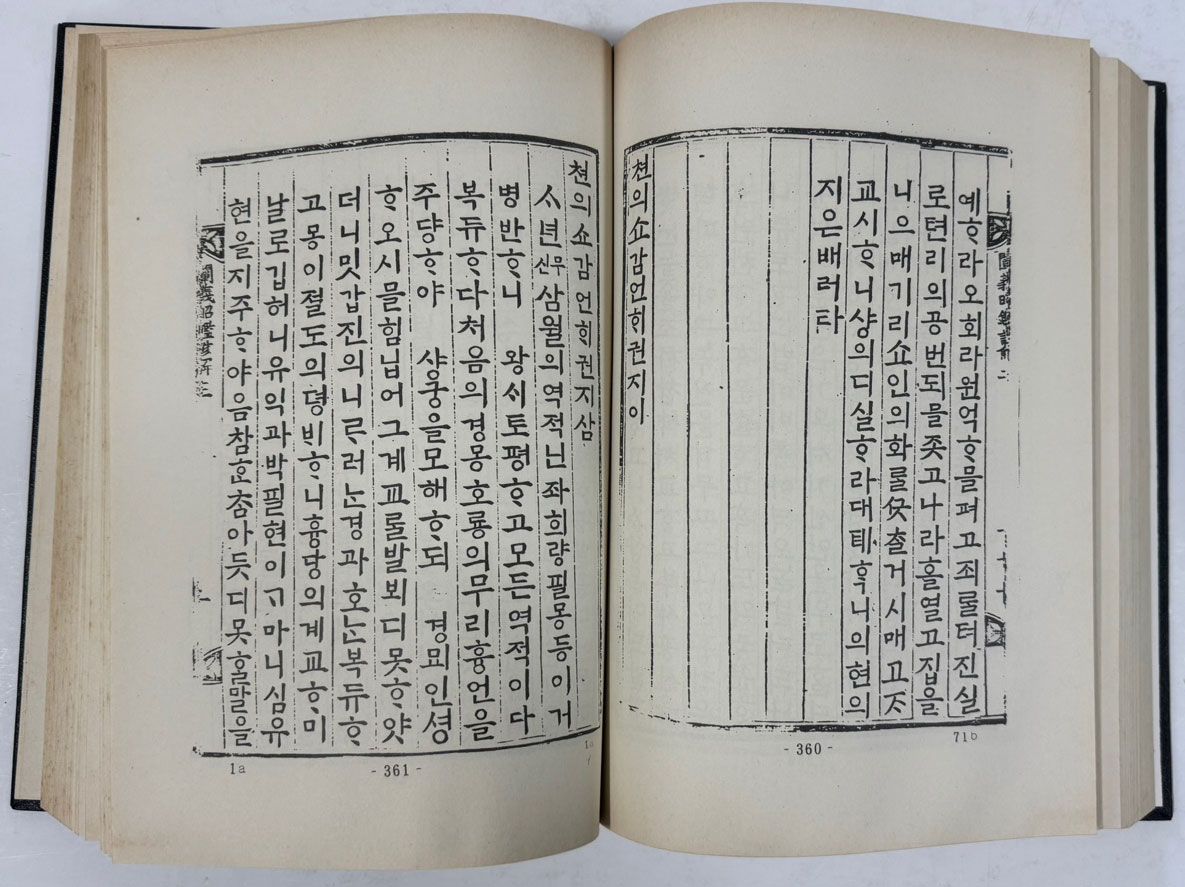 예ᄒᆞ라오회라원억ᄒᆞ믈펴고죄룰텨진실
로텬리의공번되믈좃고나라흘열고집을
니으매기리쇼인의화룰 거시매고ᄌᆞ
교시ᄒᆞ니샹의디실ᄒᆞ라대톄 니의현의
지은배러라
쳔의쇼감언ᄒᆡ권지이
闡義昭鑑諺解 二
71b
- 360 -
쳔의쇼감언ᄒᆡ권지삼
ᄉᆞ년신무삼월의역적닌좌희량필몽등이거
병반ᄒᆞ니 왕ᄉᆡ토평ᄒᆞ고모든역적이다
복듀ᄒᆞ다처음의경몽호룡의무리흉언을
주댱ᄒᆞ야 샹궁을모해ᄒᆞ되 경묘인셩
ᄒᆞ오시믈힘닙어그계교룰발뵈디못ᄒᆞ얏
더니밋갑진의니ᄅᆞ러ᄂᆞᆫ경과호ᄂᆞᆫ복듀ᄒᆞ
고몽이졀도의뎡ᄇᆡᄒᆞ니흉당의계교ᄒᆞ미
날로깁허니유익과박필현이ᄀᆞ마니심유
현을지주ᄒᆞ야음참ᄒᆞᆫᄎᆞᆷ아듯디못ᄒᆞᆯ말을
闡義昭鑑諺解 三
1a
- 361 -